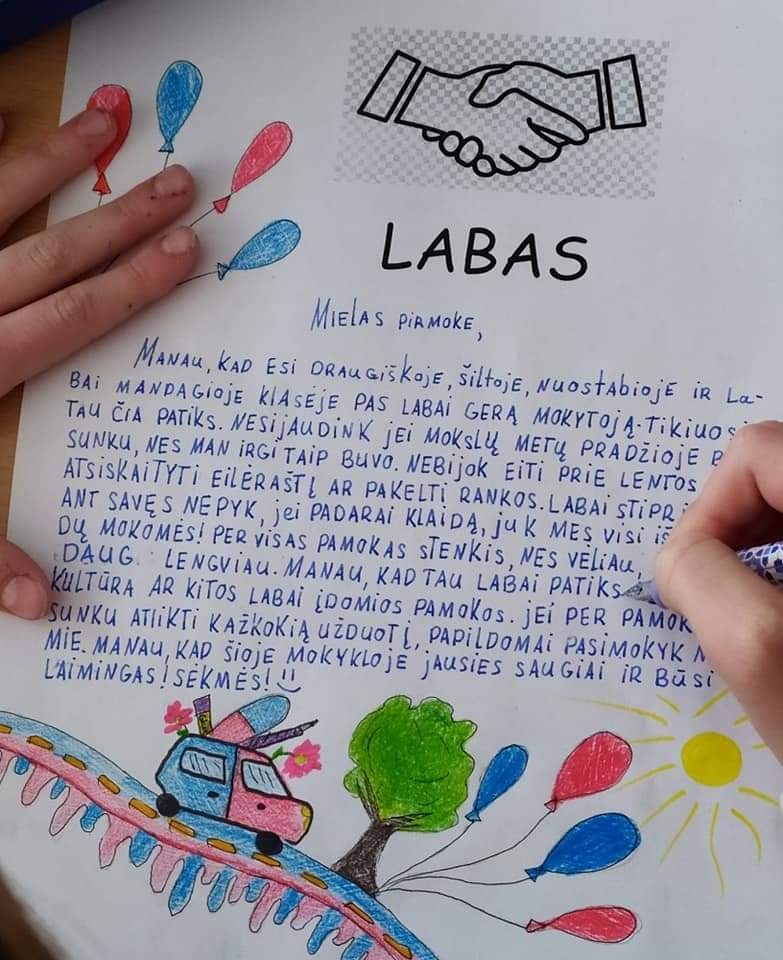 LABAS
MIELAS PIRMOKE,
MANAU, KAD ESI DRAUGIŠKOJE, ŠILTOJE, NUOSTABIOJE IR LA-
BAI MANDAGIOJE KLASĖJE PAS LABAI GERĄ MOKYTOJĄ. TIKIUOSI
TAU ČIA PATIKS. NESIJAUDINK JEI MOKSLŲ METŲ PRADŽIOJE
SUNKU, NES MAN IRGI TAIP BUVO. NEBIJOK EITI PRIE LENTOS
ATSISKAITYTI EILĖRAŠTĮ AR PAKELTI RANKOS. LABAI
ANT SAVĘS NEPYK, JEI PADARAI KLAIDĄ, JUK MES VISI
DŲ MOKOMĖS! PER VISAS PAMOKAS STENKIS, NES VĖLIAU,
DAUG LENGVIAU. MANAU, KAD TAU LABAI PATIKS
KULTŪRA AR KITOS LABAI ĮDOMIOS PAMOKOS. JEI PER
SUNKU ATLIKTI KAŽKOKIĄ UŽDUOTĮ, PAPILDOMAI PASIMOKYK
MIE. MANAU, KAD ŠIOJE MOKYKLOJE JAUSIES SAUGIAI IR BŪSI
LAIMINGAS! SĖKMĖS!